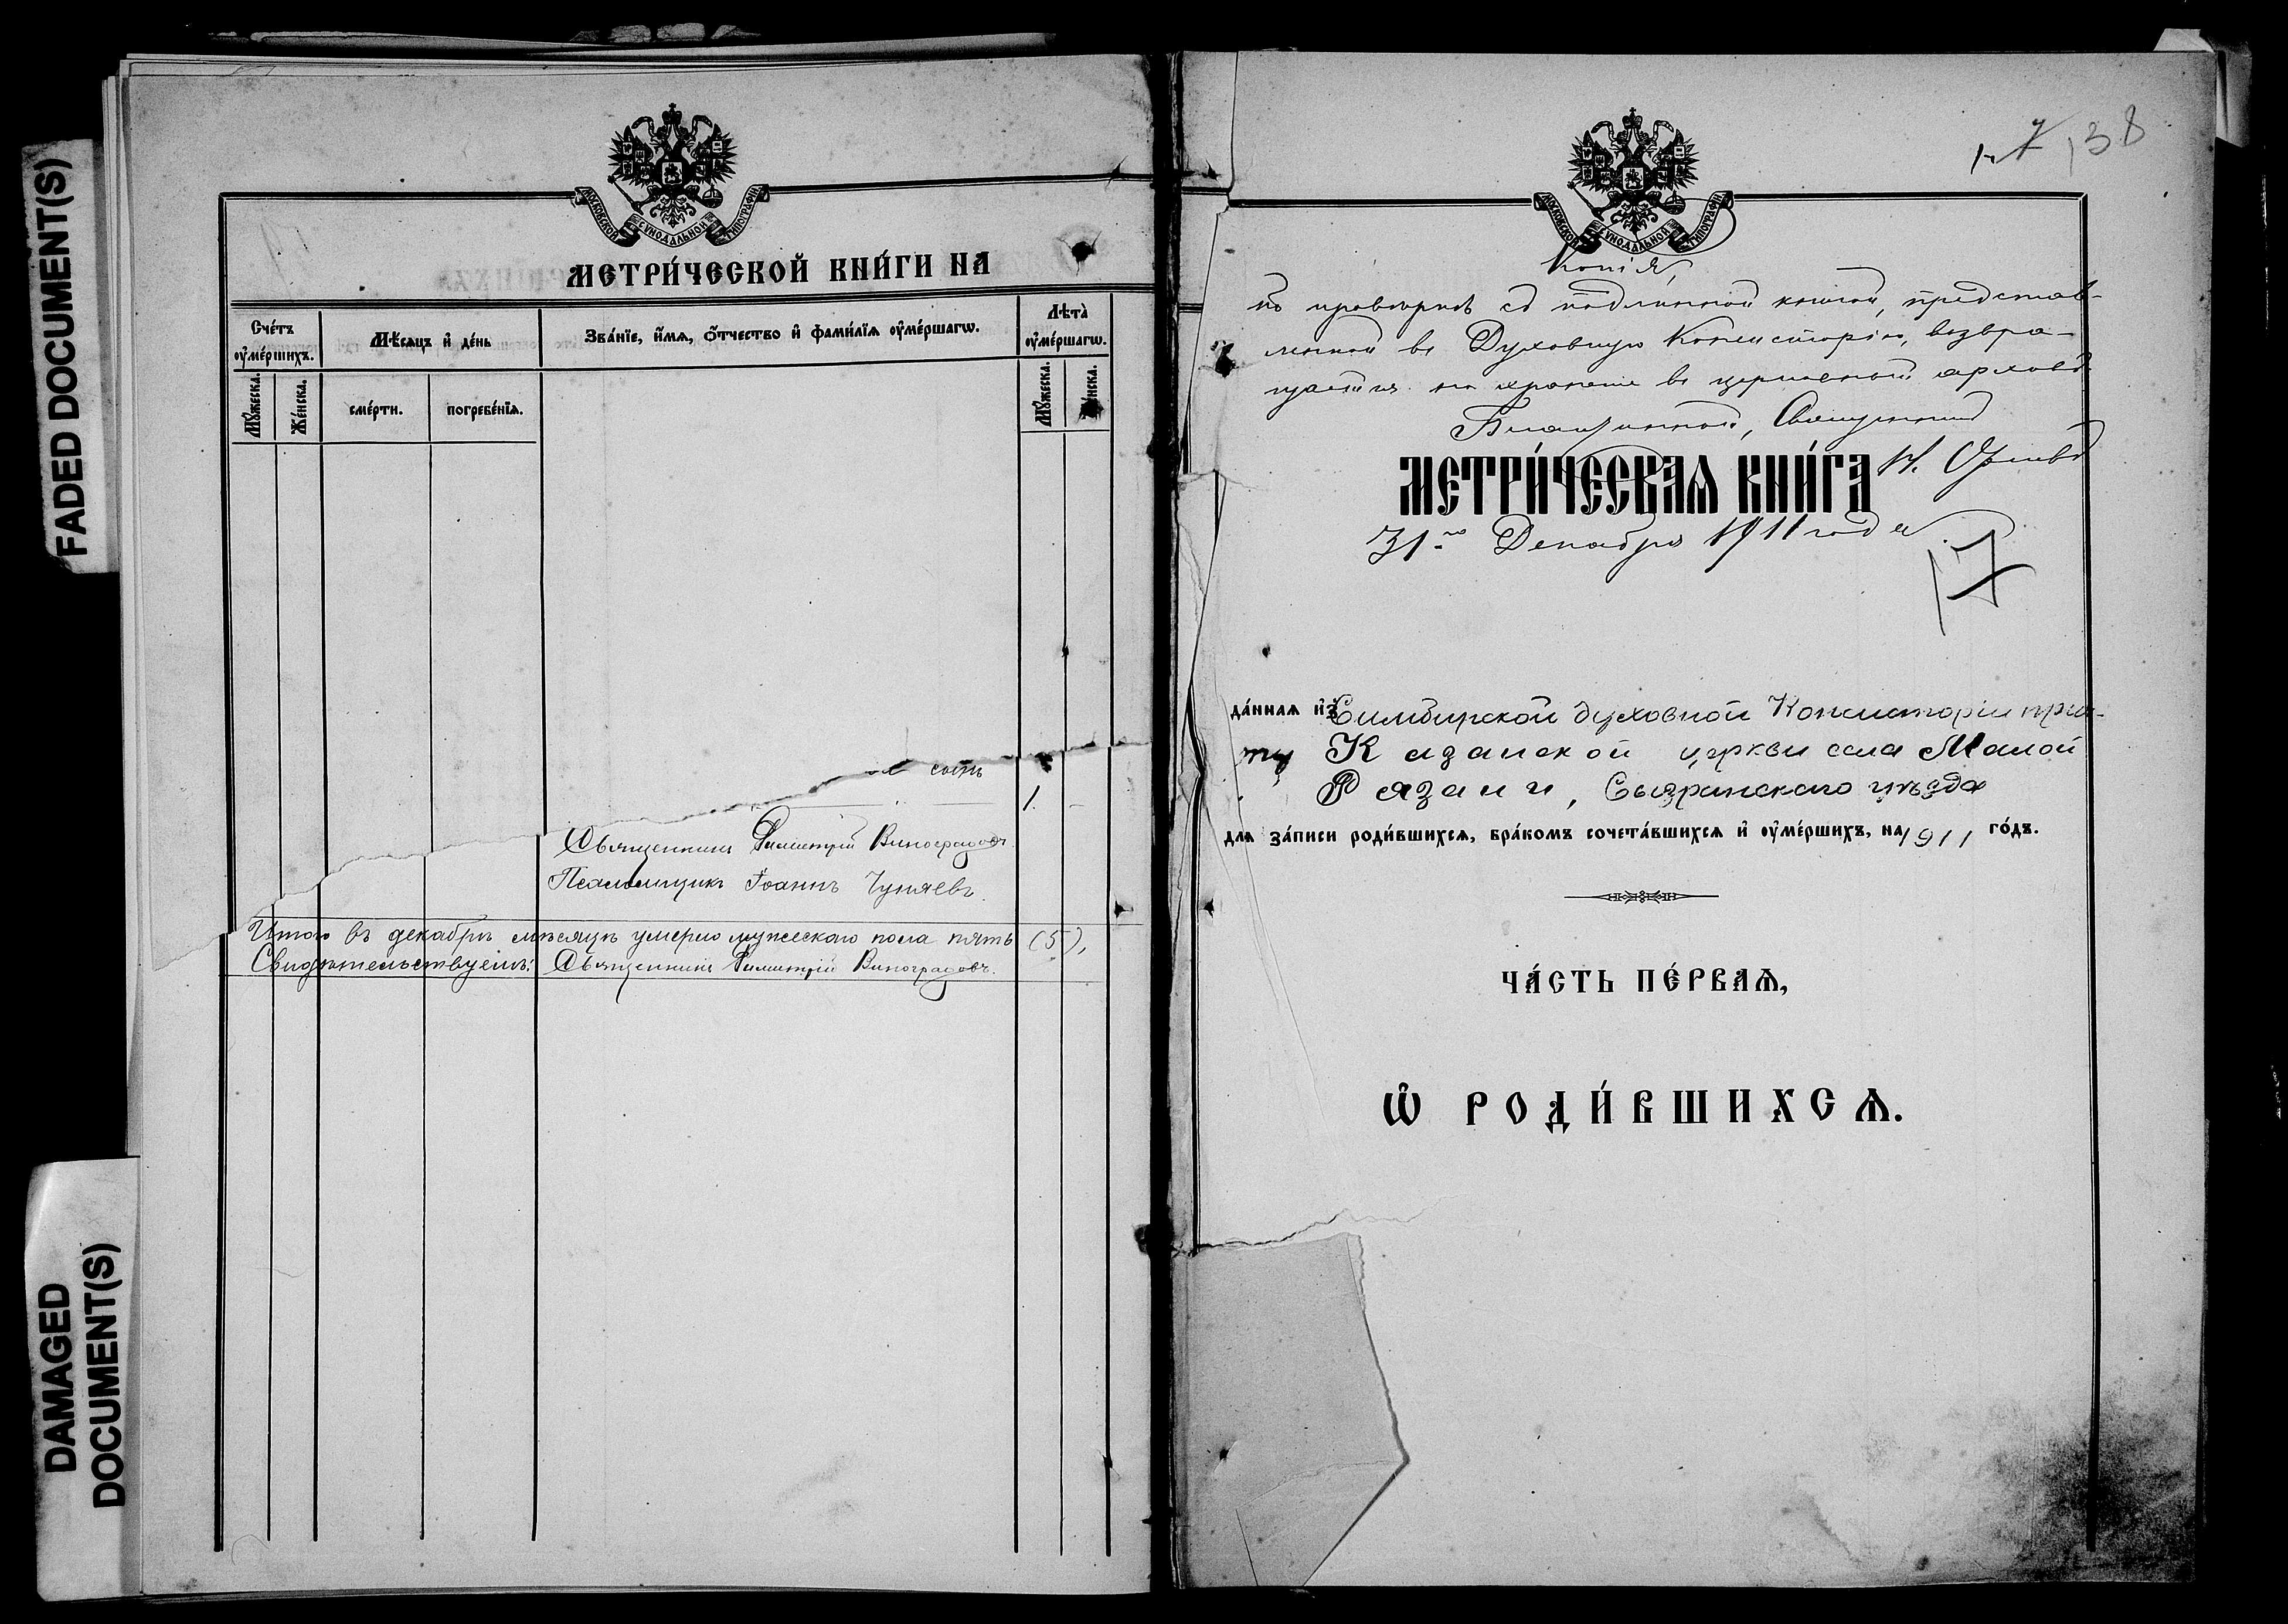 FADED DOCUMENT(S)
DAMAGED
DOCUMENT(S)
МОСКОВСКОЙ СѴНОДАЛЬНОЙ ТИПОГРАФІИ
МЕТРИ́ЧЕСКОЙ КНИ́ГИ НА
Сче́тъ оу҆ме́ршихъ.
Мѣ́сяцъ и҆ де́нь
Зва́нїе, и҆́мѧ, ѻ҆́тчество и҆ фами́лїѧ оу҆ме́ршагѡ.
Лѣта̀ оу҆ме́ршагѡ.
Мꙋ́жеска.
Же́нска.
сме́рти.
погребе́нїѧ.
Мꙋ́жеска.
Же́нска.
1. -
Священникъ Димитрій Виноградовъ
Псаломщикъ Іоаннъ Чуняевъ.
Итого въ декабрѣ мѣсяцѣ умерло мужескаго пола пять (5),
Свидѣтельствуемъ: Священникъ Димитрій Виноградовъ.
138
МОСКОВСКОЙ СѴНОДАЛЬНОЙ ТИПОГРАФІИ
Копія,
по провѣркѣ съ подлинной книгой, представ-
ленной въ Духовную Консисторію, возвра-
щается на храненіе въ церковный архивъ.
Благочинный, Священникъ
МЕТРИ́ЧЕСКАѦ КНИ́ГА
31-го Декабря 1911 года.
17
да́ннаѧ и҆зъ Симбирской духовной Консисторіи прич-
ту Казанской церкви села Малой
Рязани, Сызранскаго уѣзда
длѧ за́писи роди́вшихсѧ, бра́комъ сочета́вшихсѧ и҆ оу҆ме́ршихъ, на 1911 го́дъ.
ЧА́СТЬ ПЕ́РВАѦ,
Ѡ҆ РОДИ́ВШИХСѦ.